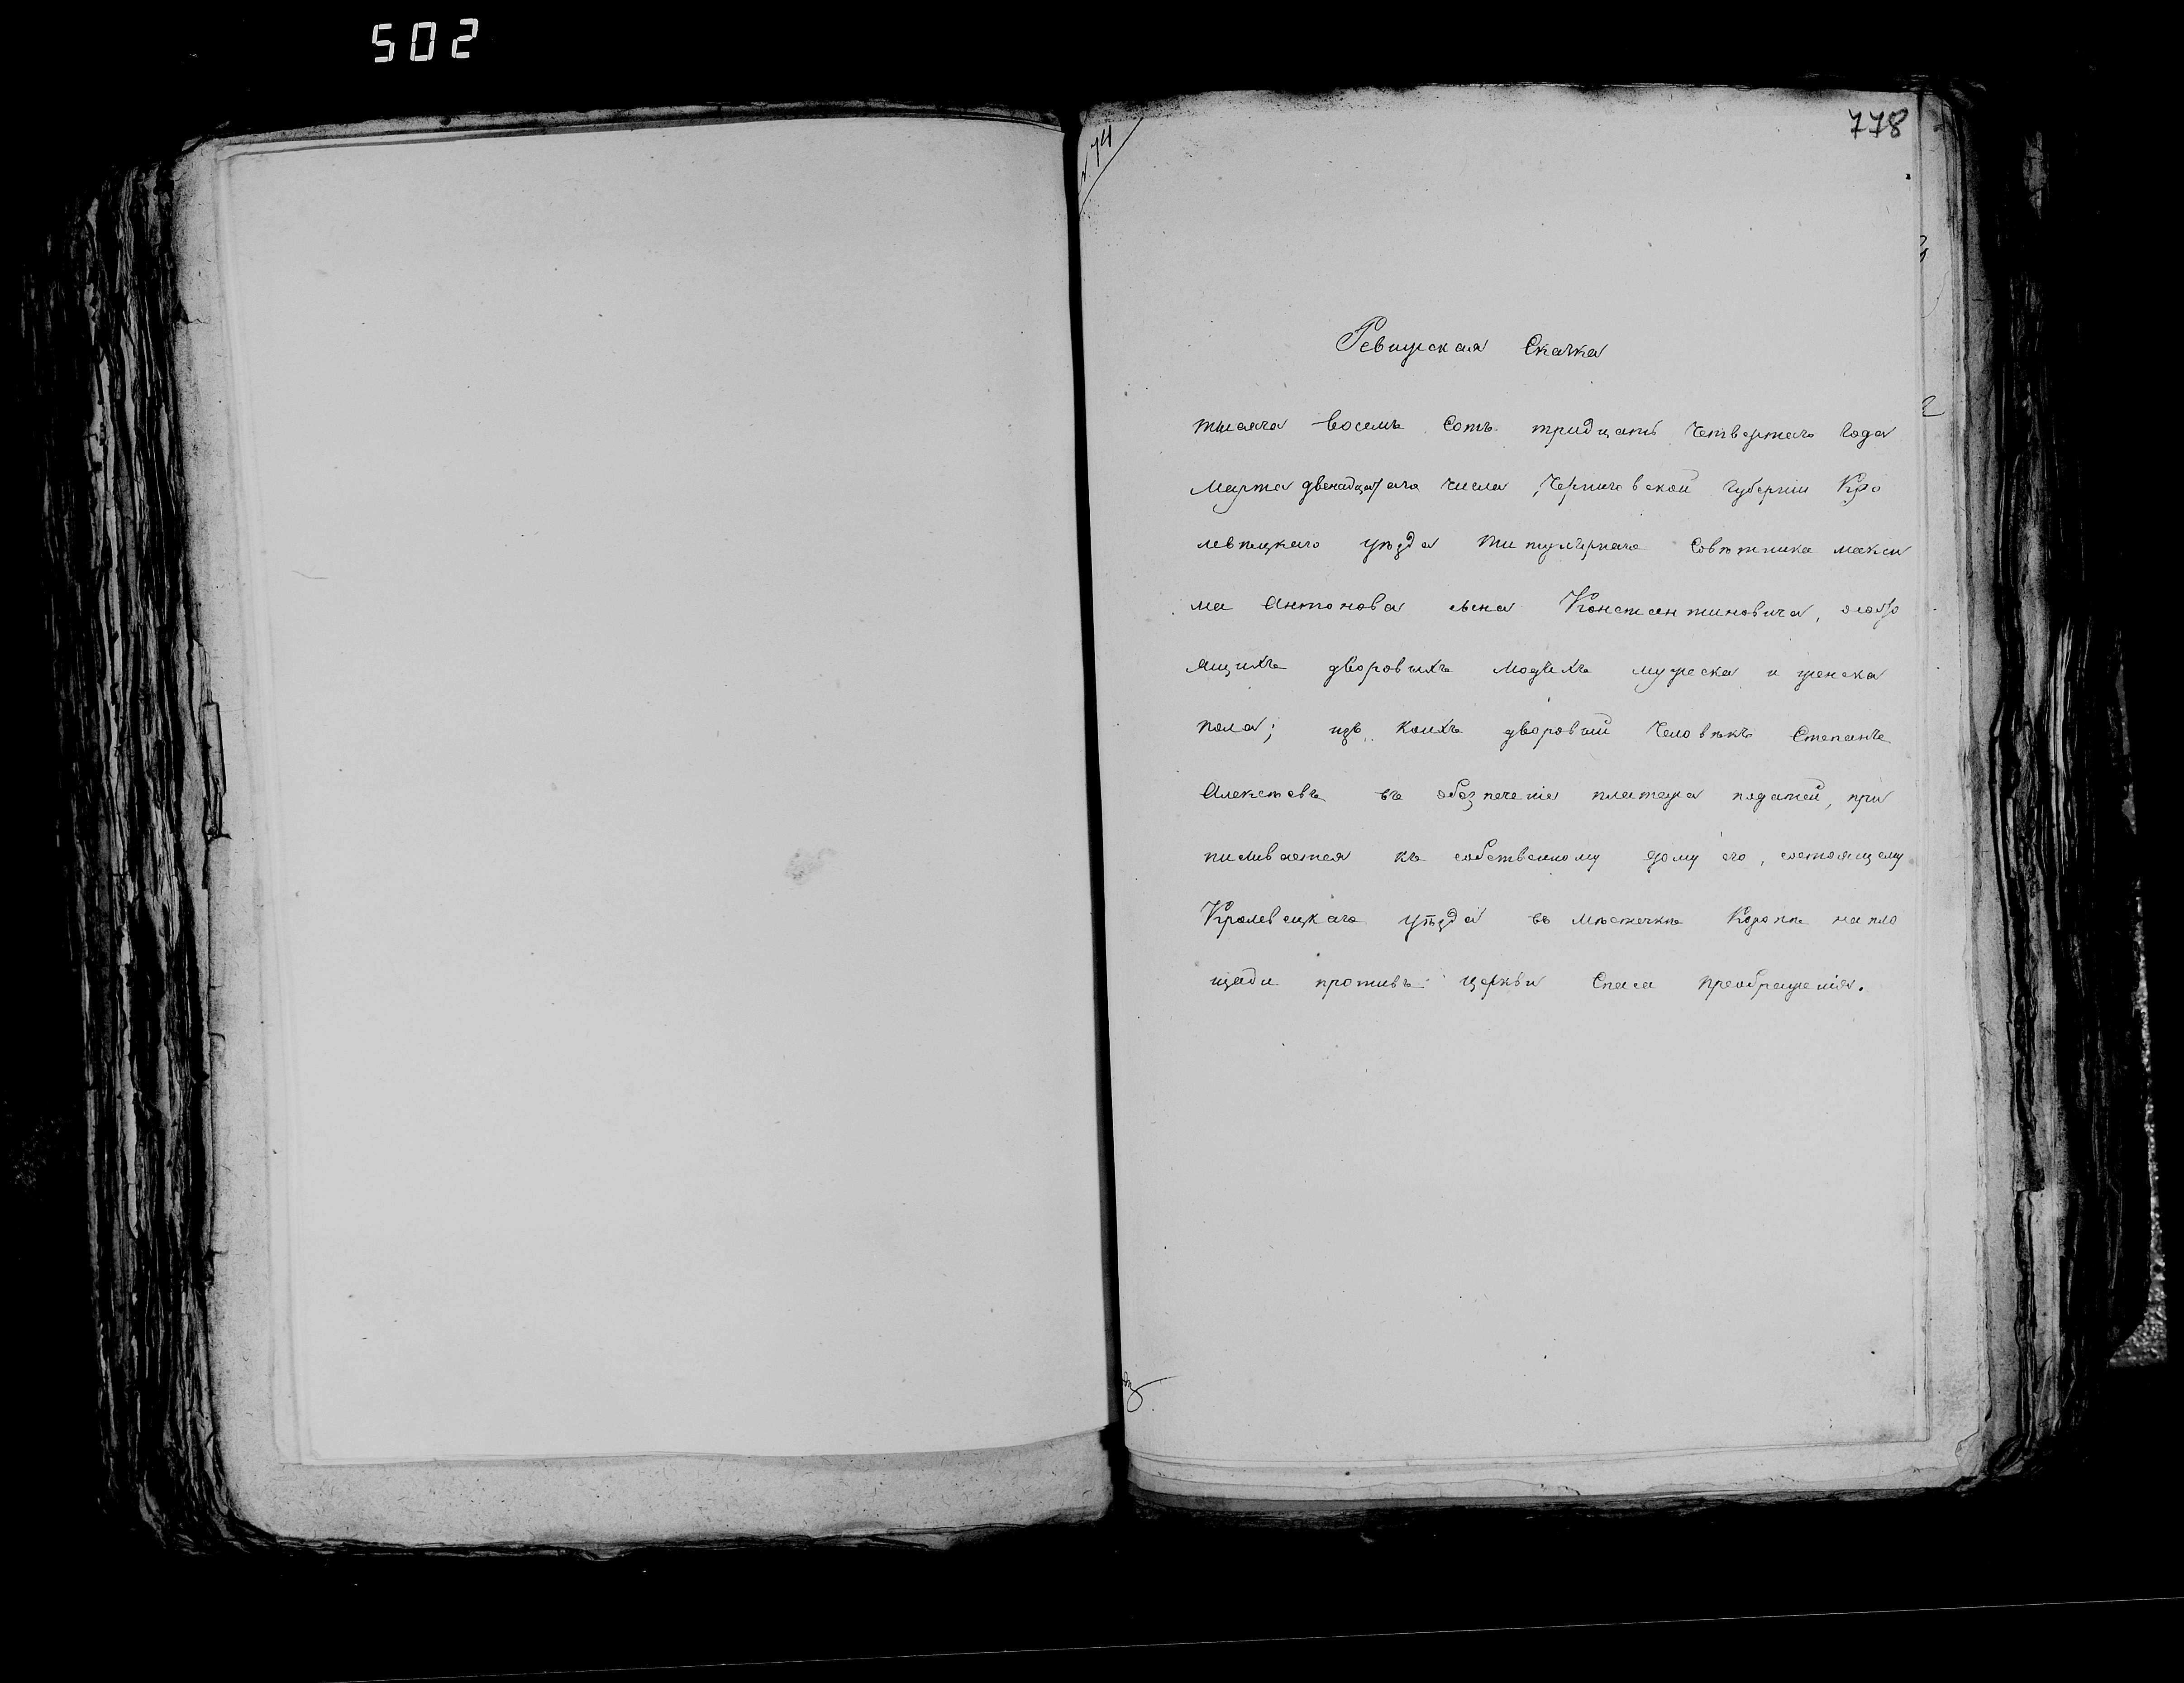 502
778
N 74
Ревизская Сказка
тысяча восемь сотъ тридцать четвертаго года
Марта двенадцатаго числа, Черниговской Губерніи Кро
левецкаго уѣзда Титулярнаго Совѣтника Макси
ма Антонова сына Константиновича, о состо
ящихъ дворовыхъ людяхъ мужеска и женска
пола; изъ коихъ дворовый человѣкъ Степанъ
Алексѣевъ въ обезпеченіе платежа податей, при
писывается къ собственному дому его, состоящему
Кролевецкаго уѣзда въ мѣстечкѣ Коропѣ на пло
щади противъ церкви Спаса преображенія.